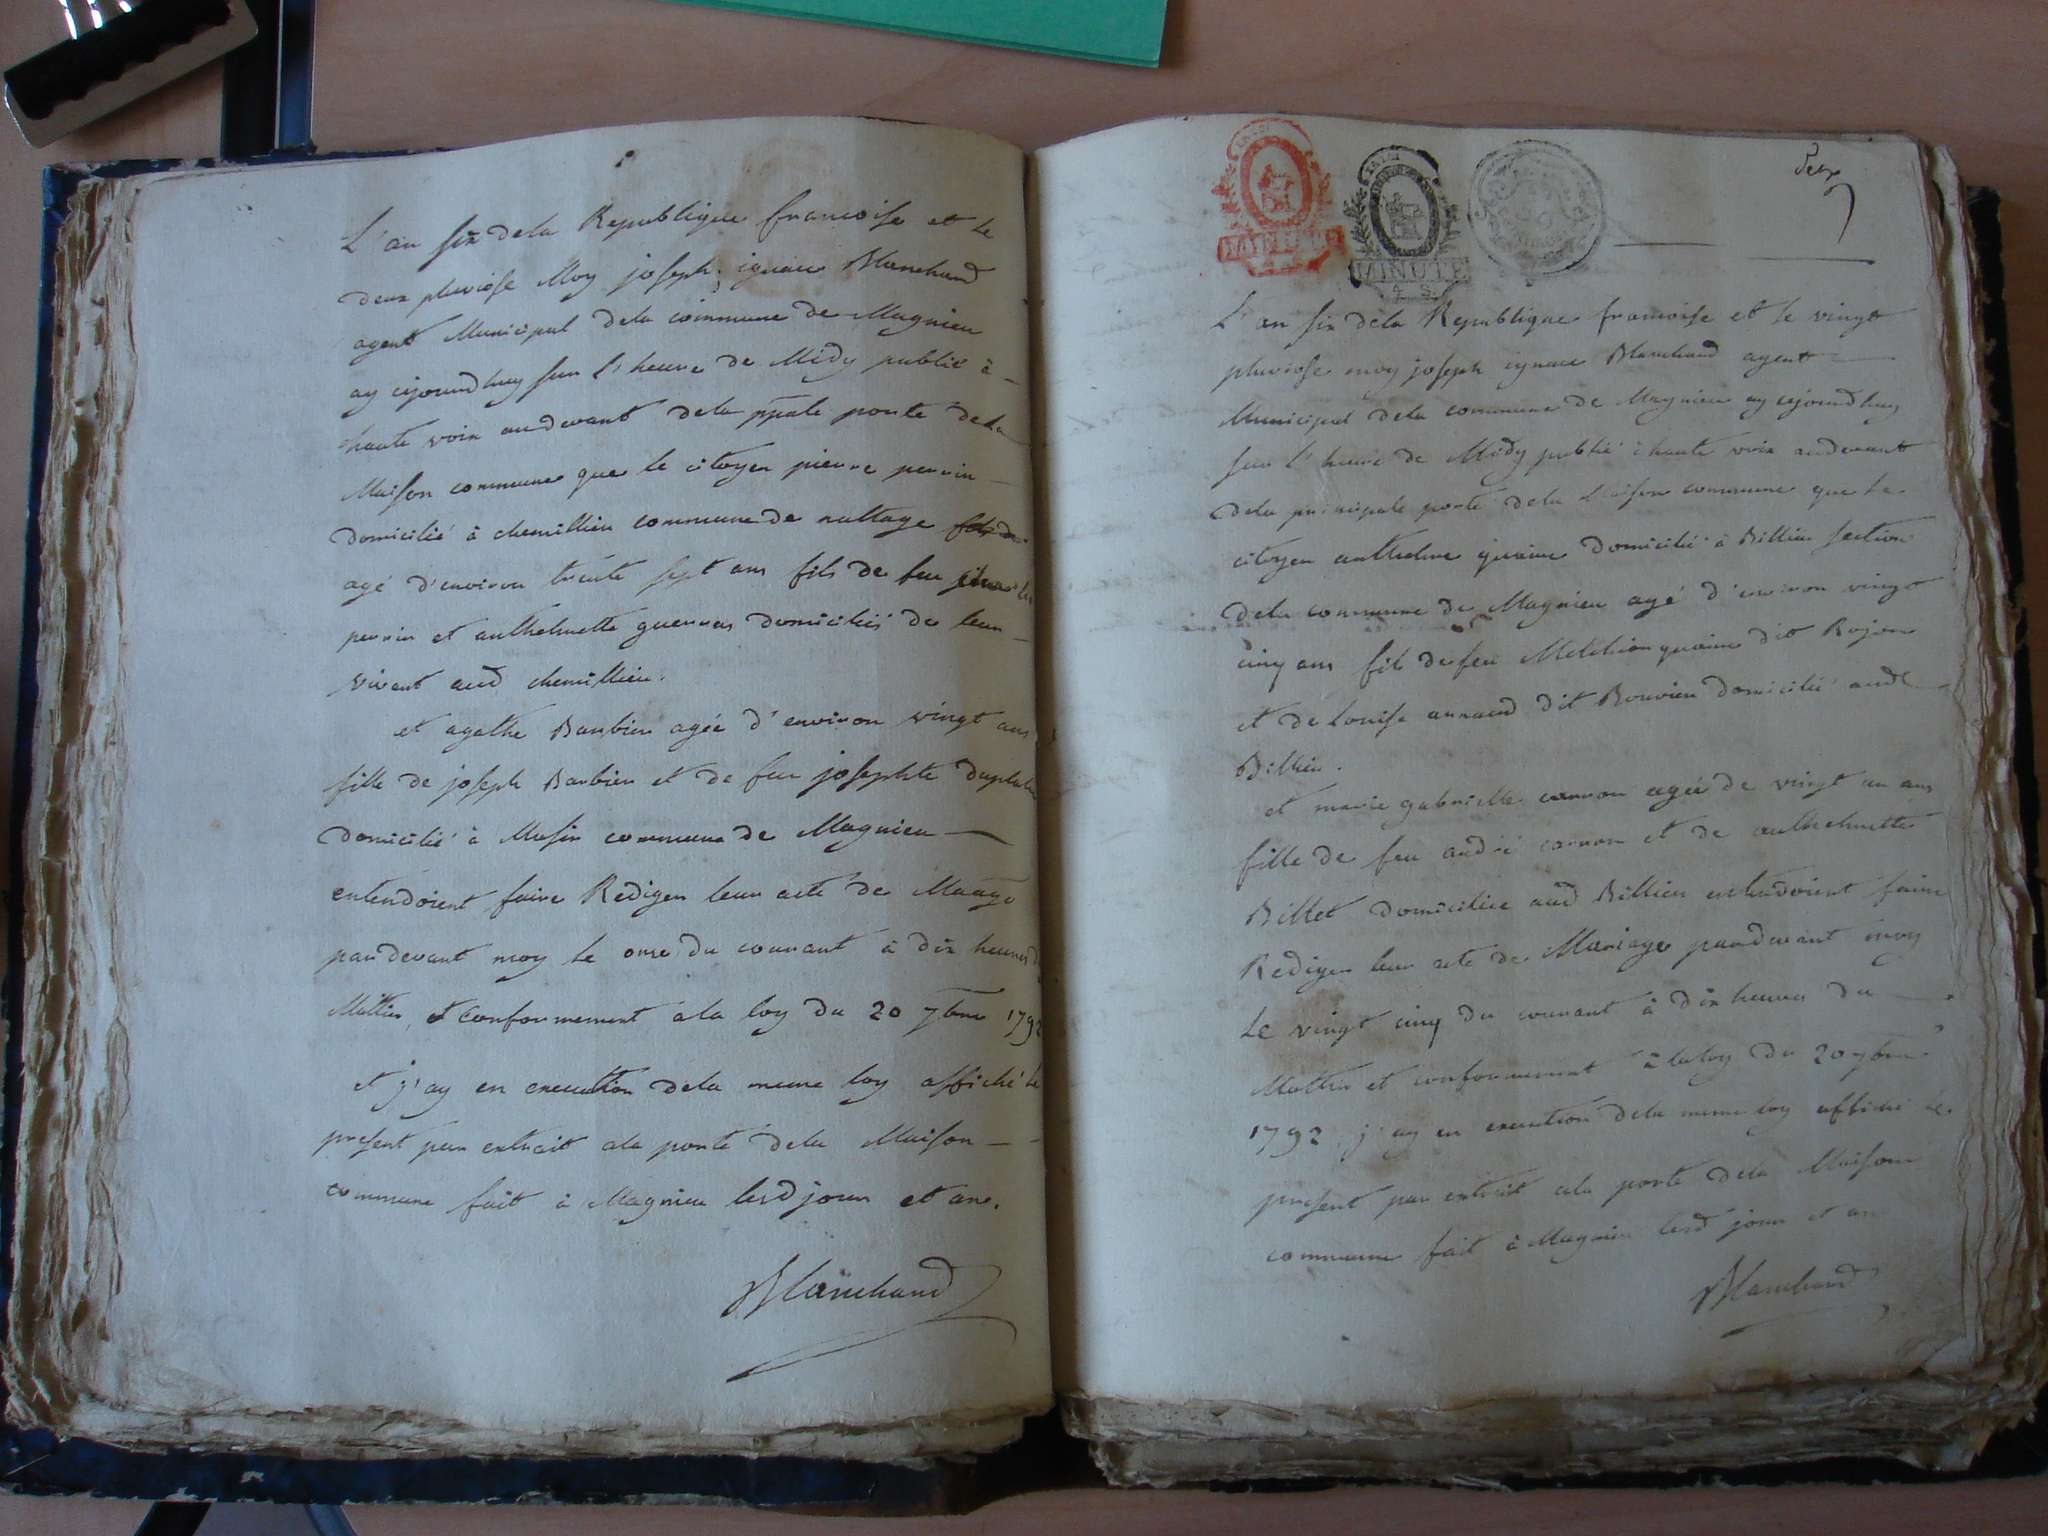 L'an six dela Republique francoise et le
deux pluviose Moy joseph ignace Blanchard
agent Municipal dela commune de Magnieu
ay cejourdhuy sur l'heure de Midy publié à
haute voix audevant dela ppale porte dela
Maison commune que le citoyen pierre perrin
domicilié à chemillieu commune de nattage
agé d'environ trente sept ans fils de feu
perrin et anthelmette domiciliés de leur
vivant aud chemillieu.
et agathe Barbier agée d'environ vingt ans
fille de joseph Barbier et de feu josephte
domicilié à Musin commune de Magnieu
entendoient faire Rediger leur acte de Maage
pardevant moy le onse du courant à dix heures
Mattin, et conformement ala loy du 20 7bre 1792
et j'ay en execution dela meme loy affiché le
present par extrait ala porte dela Maison
commune fait à Magnieu lesd jour et an.
Blanchard
MINUTE
LA LOI
MINUTE
4 S.
L'an six dela Republique francoise et le vingt
pluviose moy joseph ignace Blanchard agent
Municipal dela commune de Magnieu ay cejourdhuy
sur l'heure de Midy publié à haute voix audevant
dela principale porte dela Maison commune que le
citoyen anthelme domicilié à Billieu section
dela commune de Magnieu agé d'environ vingt
cinq ans fils de feu Melchior dit
et de Louise dit Bouvier domicilié aud
Billieu.
et marie gabrielle carron agée de vingt un ans
fille de feu andré carron et de anthelmette
Billet domiciliée aud Billieu entendoient faire
Rediger leur acte de Mariage pardevant moy
Le vingt cinq du courant à dix heures du
Mattin et conformement à la loy du 20 7bre
1792 j'ay en execution dela meme loy affiché le
present par extrait ala porte dela Maison
commune fait à Magnieu lesd jour et an
Blanchard